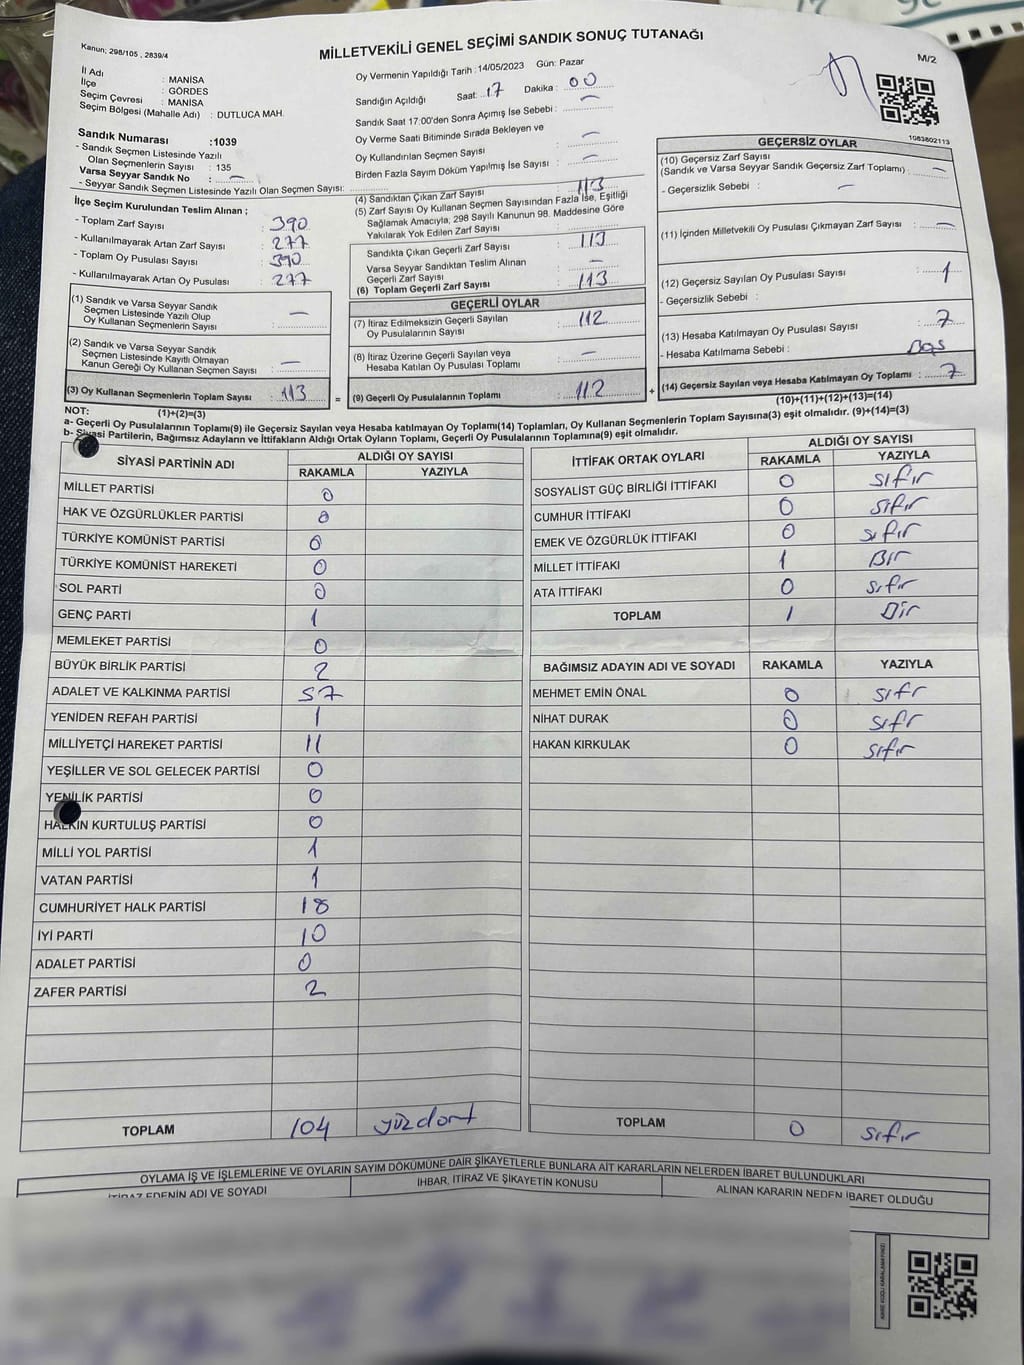 Kanun; 298/105 , 2839/4
MİLLETVEKİLİ GENEL SEÇİMİ SANDIK SONUÇ TUTANAĞI
M/2
İl Adı : MANİSA
İlçe : GÖRDES
Seçim Çevresi : MANİSA
Seçim Bölgesi (Mahalle Adı) : DUTLUCA MAH.
Oy Vermenin Yapıldığı Tarih : 14/05/2023 Gün: Pazar
Sandığın Açıldığı Saat: 17 Dakika : 00
Sandık Saat 17:00'den Sonra Açımış İse Sebebi : —
Oy Verme Saati Bitiminde Sırada Bekleyen ve
Oy Kullandırılan Seçmen Sayısı : —
Birden Fazla Sayım Döküm Yapılmış İse Sayısı : —
1083802113
Sandık Numarası :1039
- Sandık Seçmen Listesinde Yazılı
Olan Seçmenlerin Sayısı : 135
Varsa Seyyar Sandık No : —
- Seyyar Sandık Seçmen Listesinde Yazılı Olan Seçmen Sayısı:
İlçe Seçim Kurulundan Teslim Alınan ;
- Toplam Zarf Sayısı : 390
- Kullanılmayarak Artan Zarf Sayısı : 277
- Toplam Oy Pusulası Sayısı : 390
- Kullanılmayarak Artan Oy Pusulası : 277
(1) Sandık ve Varsa Seyyar Sandık
Seçmen Listesinde Yazılı Olup
Oy Kullanan Seçmenlerin Sayısı : —
(2) Sandık ve Varsa Seyyar Sandık
Seçmen Listesinde Kayıtlı Olmayan
Kanun Gereği Oy Kullanan Seçmen Sayısı : —
(3) Oy Kullanan Seçmenlerin Toplam Sayısı : 113
(1)+(2)=(3)
(4) Sandıktan Çıkan Zarf Sayısı : 113
(5) Zarf Sayısı Oy Kullanan Seçmen Sayısından Fazla İse, Eşitliği
Sağlamak Amacıyla, 298 Sayılı Kanunun 98. Maddesine Göre
Yakılarak Yok Edilen Zarf Sayısı :
Sandıkta Çıkan Geçerli Zarf Sayısı : 113
Varsa Seyyar Sandıktan Teslim Alınan
Geçerli Zarf Sayısı : —
(6) Toplam Geçerli Zarf Sayısı : 113
GEÇERLİ OYLAR
(7) İtiraz Edilmeksizin Geçerli Sayılan
Oy Pusulalarının Sayısı : 112
(8) İtiraz Üzerine Geçerli Sayılan veya
Hesaba Katılan Oy Pusulası Toplamı : —
= (9) Geçerli Oy Pusulalarının Toplamı : 112 +
GEÇERSİZ OYLAR
(10) Geçersiz Zarf Sayısı
(Sandık ve Varsa Seyyar Sandık Geçersiz Zarf Toplamı) : —
- Geçersizlik Sebebi : —
(11) İçinden Milletvekili Oy Pusulası Çıkmayan Zarf Sayısı : —
(12) Geçersiz Sayılan Oy Pusulası Sayısı : 1
- Geçersizlik Sebebi :
(13) Hesaba Katılmayan Oy Pusulası Sayısı : 7
- Hesaba Katılmama Sebebi : Boş
(14) Geçersiz Sayılan veya Hesaba Katılmayan Oy Toplamı : 7
(10)+(11)+(12)+(13)=(14)
NOT:
a- Geçerli Oy Pusulalarının Toplamı(9) ile Geçersiz Sayılan veya Hesaba katılmayan Oy Toplamı(14) Toplamları, Oy Kullanan Seçmenlerin Toplam Sayısına(3) eşit olmalıdır. (9)+(14)=(3)
b- Siyasi Partilerin, Bağımsız Adayların ve İttifakların Aldığı Ortak Oyların Toplamı, Geçerli Oy Pusulalarının Toplamına(9) eşit olmalıdır.
SİYASİ PARTİNİN ADI ALDIĞI OY SAYISI
RAKAMLA YAZIYLA
MİLLET PARTİSİ 0
HAK VE ÖZGÜRLÜKLER PARTİSİ 0
TÜRKİYE KOMÜNİST PARTİSİ 0
TÜRKİYE KOMÜNİST HAREKETİ 0
SOL PARTİ 0
GENÇ PARTİ 1
MEMLEKET PARTİSİ 0
BÜYÜK BİRLİK PARTİSİ 2
ADALET VE KALKINMA PARTİSİ 57
YENİDEN REFAH PARTİSİ 1
MİLLİYETÇİ HAREKET PARTİSİ 11
YEŞİLLER VE SOL GELECEK PARTİSİ 0
YENİLİK PARTİSİ 0
HALKIN KURTULUŞ PARTİSİ 0
MİLLİ YOL PARTİSİ 1
VATAN PARTİSİ 1
CUMHURİYET HALK PARTİSİ 18
İYİ PARTİ 10
ADALET PARTİSİ 0
ZAFER PARTİSİ 2
TOPLAM 104 yüzdört
İTTİFAK ORTAK OYLARI ALDIĞI OY SAYISI
RAKAMLA YAZIYLA
SOSYALİST GÜÇ BİRLİĞİ İTTİFAKI 0 sıfır
CUMHUR İTTİFAKI 0 sıfır
EMEK VE ÖZGÜRLÜK İTTİFAKI 0 sıfır
MİLLET İTTİFAKI 1 Bir
ATA İTTİFAKI 0 sıfır
TOPLAM 1 Bir
BAĞIMSIZ ADAYIN ADI VE SOYADI RAKAMLA YAZIYLA
MEHMET EMİN ÖNAL 0 sıfır
NİHAT DURAK 0 sıfır
HAKAN KIRKULAK 0 sıfır
TOPLAM 0 sıfır
OYLAMA İŞ VE İŞLEMLERİNE VE OYLARIN SAYIM DÖKÜMÜNE DAİR ŞİKAYETLERLE BUNLARA AİT KARARLARIN NELERDEN İBARET BULUNDUKLARI
İTİRAZ EDENİN ADI VE SOYADI
İHBAR, İTİRAZ VE ŞİKAYETİN KONUSU
ALINAN KARARIN NEDEN İBARET OLDUĞU